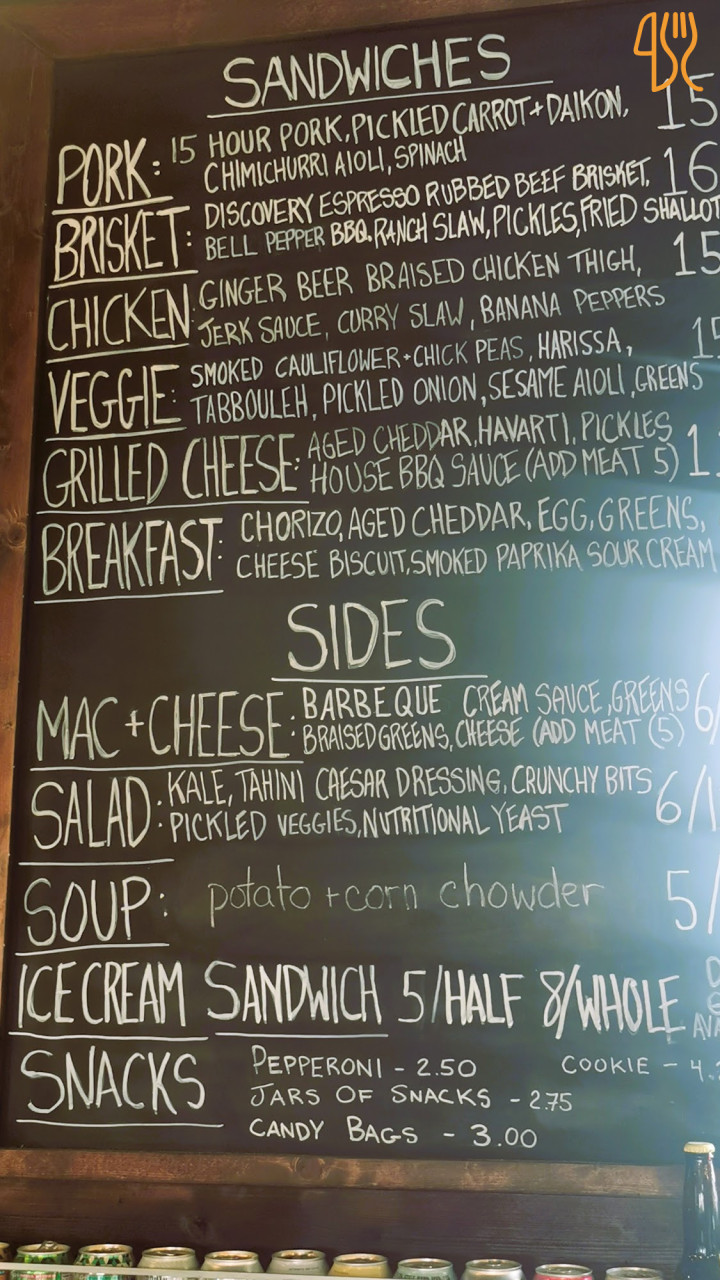 SANDWICHES
PORK: 15 HOUR PORK, PICKLED CARROT + DAIKON, 15
CHIMICHURRI AIOLI, SPINACH
BRISKET: DISCOVERY ESPRESSO RUBBED BEEF BRISKET, 16
BELL PEPPER BBQ, RANCH SLAW, PICKLES, FRIED SHALLOT
CHICKEN: GINGER BEER BRAISED CHICKEN THIGH, 15
JERK SAUCE, CURRY SLAW, BANANA PEPPERS
VEGGIE: SMOKED CAULIFLOWER + CHICK PEAS, HARISSA, 15
TABBOULEH, PICKLED ONION, SESAME AIOLI, GREENS
GRILLED CHEESE: AGED CHEDDAR, HAVARTI, PICKLES
HOUSE BBQ SAUCE (ADD MEAT 5)
BREAKFAST: CHORIZO, AGED CHEDDAR, EGG, GREENS,
CHEESE BISCUIT, SMOKED PAPRIKA SOUR CREAM
SIDES
MAC + CHEESE: BARBEQUE CREAM SAUCE, GREENS 6/
BRAISED GREENS, CHEESE (ADD MEAT (5)
SALAD: KALE, TAHINI CAESAR DRESSING, CRUNCHY BITS 6/
PICKLED VEGGIES, NUTRITIONAL YEAST
SOUP: potato + corn chowder 5/
ICE CREAM SANDWICH 5/HALF 8/WHOLE
SNACKS PEPPERONI - 2.50 COOKIE - 4.
JARS OF SNACKS - 2.75
CANDY BAGS - 3.00